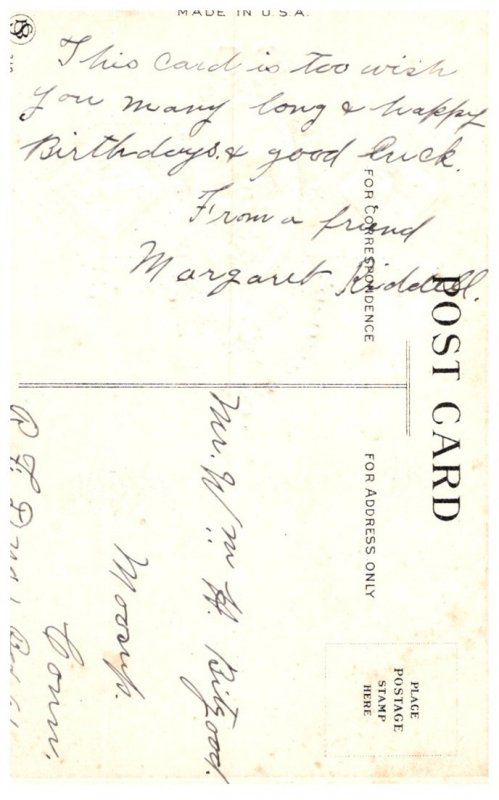 MADE IN U.S.A.
This card is too wish
you many long & happy
Birthdays & good luck.
From a friend
Margaret Riddell.
POST CARD
FOR CORRESPONDENCE
FOR ADDRESS ONLY
PLACE
POSTAGE
STAMP
HERE
Mr. Wm H. Bitgood.
Moosup.
Conn.
R.F.D no 1 Box